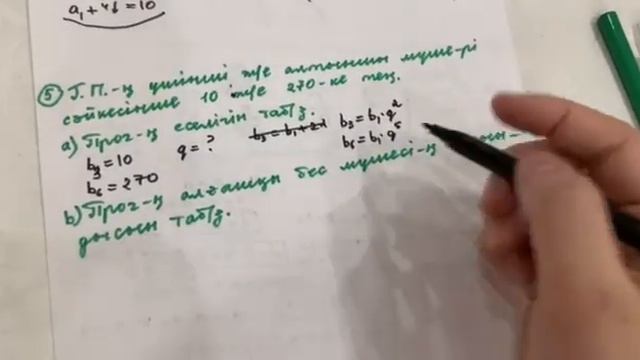 a₁ + 4d = 10
⑤ Г.П.-ң үшінші және алтыншы мүше-рі
сәйкесінше 10 және 270-ке тең.
a) Прог-ң еселігін таб/з.
b₃ = 10 q = ? b₃ = b₁ · q²
b₆ = 270 b₆ = b₁ · q⁵
b) Прог-ң алғашқы бес мүшесі-ң
дысын таб/з.